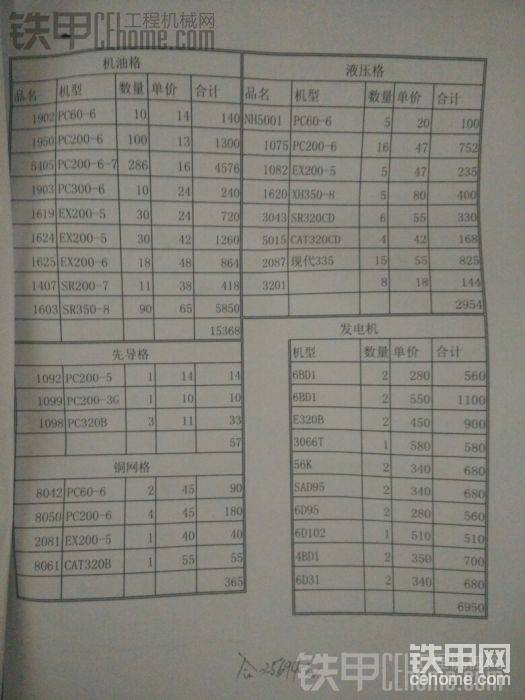 铁甲 工程机械网
CEhome.com
机油格
品名 机型 数量 单价 合计
1902 PC60-6 10 14 140
1950 PC200-6 100 13 1300
5405 PC200-6-7 286 16 4576
1903 PC300-6 10 24 240
1619 EX200-5 30 24 720
1624 EX200-5 30 42 1260
1625 EX200-6 18 48 864
1407 SR200-7 11 38 418
1603 SR350-8 90 65 5850
15368
先导格
1092 PC200-5 1 14 14
1099 PC200-3G 1 10 10
1098 PC320B 3 11 33
57
铜网格
8042 PC60-6 2 45 90
8050 PC200-6 4 45 180
2081 EX200-5 1 40 40
8061 CAT320B 1 55 55
365
液压格
品名 机型 数量 单价 合计
NH5001 PC60-6 5 20 100
1075 PC200-6 16 47 752
1082 EX200-5 5 47 235
1620 XH350-8 5 80 400
3043 SR320CD 6 55 330
5015 CAT320CD 4 42 168
2087 现代335 15 55 825
3201 8 18 144
2954
发电机
机型 数量 单价 合计
6BD1 2 280 560
6BD1 2 550 1100
E320B 2 450 900
3066T 1 580 580
56K 2 340 680
SAD95 2 340 680
6D95 2 280 560
6D102 1 510 510
4BD1 2 350 700
6D31 2 340 680
6950
铁甲
铁甲网
cehome.com